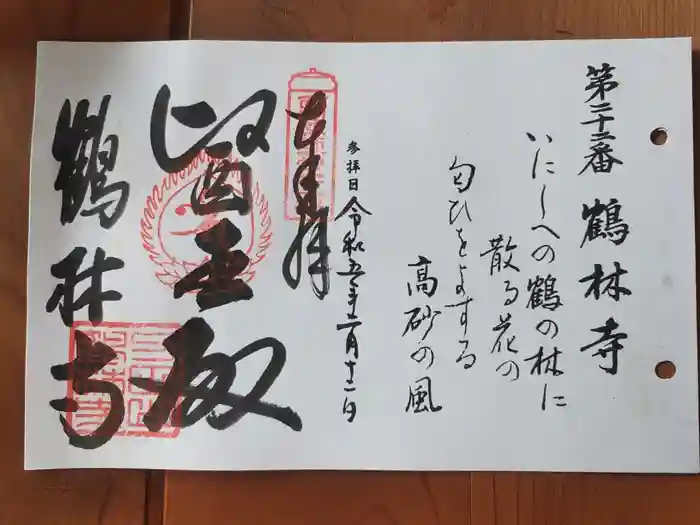 第二十二番 鶴林寺
いにしへの鶴の林に
散る花の
匂ひをよする
高砂の風
参拝日 令和五年二月十二日
奉拝
医王殿
鶴林寺